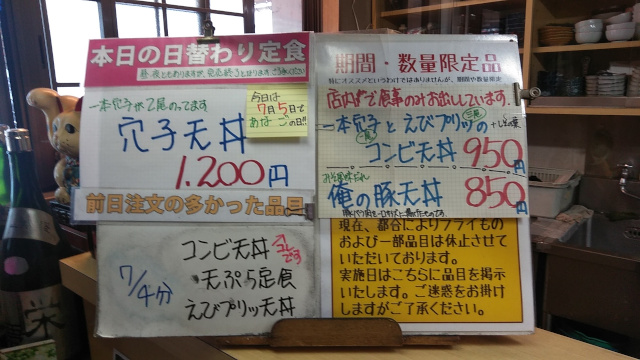 本日の日替わり定食
昼・夜ともありますが、完売終了となります ご了承ください
一本穴子が乙尾のってます
穴子天丼
1,200円
今日は
7月5日で
あなごの日!!
前日注文の多かった品目
7/4分
コンビ天丼
コレです
天ぷら定食
えびプリッツ天丼
期間・数量限定品
特にオススメというわけではありませんが、期間や数量限定
店内で食事のみお出ししています。
一本穴子とえびプリッツの
コンビ天丼 950円
俺の豚天丼 850円
現在、都合によりフライもの
および一部品目は休止させて
いただいております。
実施日はこちらに品目を掲示
いたします。ご迷惑をお掛け
しますがご了承ください。
栄